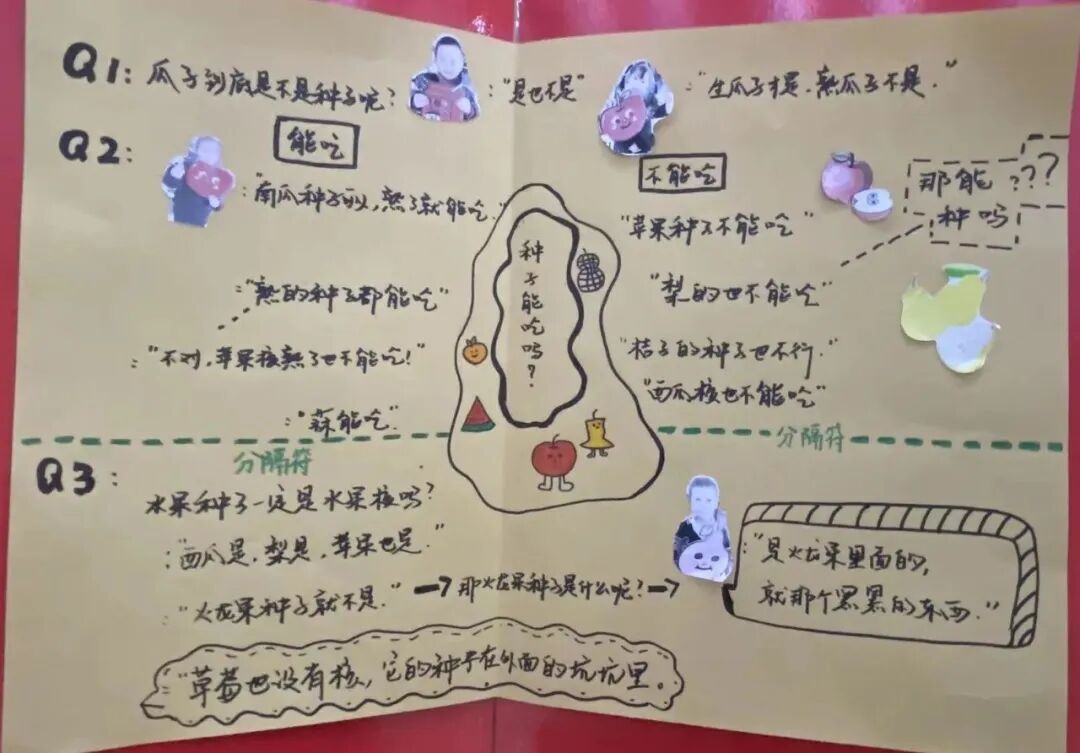 Q1:瓜子到底是不是种子呢? :"是也不是" :"生瓜子才是,熟瓜子不是."
Q2:
能吃
:"南瓜种子可以,熟了就能吃."
:"熟的种子都能吃"
:"不对,苹果核熟了也不能吃!"
:"蒜能吃."
种子能吃吗?
不能吃
"苹果种子不能吃"
"梨的也不能吃"
"桔子的种子也不行."
"西瓜核也不能吃"
那能
种吗
???
分隔符
分隔符
Q3:
水果种子一定是水果核吗?
:"西瓜是,梨是,苹果也是."
:"火龙果种子就不是." → 那火龙果种子是什么呢? →
:"是火龙果里面的,
就那个黑黑的东西."
"草莓也没有核,它的种子在外面的坑坑里。